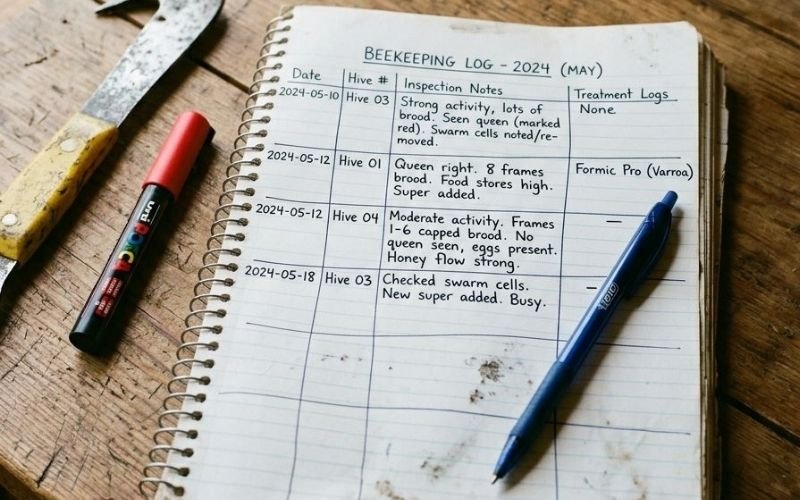 BEEKEEPING LOG - 2024 (MAY)
Date Hive # Inspection Notes Treatment Logs
2024-05-10 Hive 03 Strong activity, lots of None
brood. Seen queen (marked
red). Swarm cells noted/re-
moved.
2024-05-12 Hive 01 Queen right. 8 frames Formic Pro (Varroa)
brood. Food stores high.
Super added.
2024-05-12 Hive 04 Moderate activity. Frames —
1-6 capped brood. No
queen seen, eggs present.
Honey flow strong.
2024-05-18 Hive 03 Checked swarm cells. –
New super added. Busy.
uni
POSCA